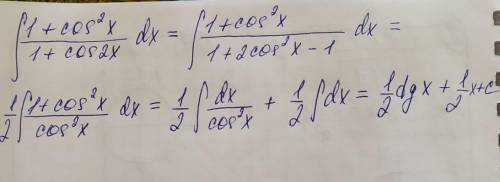 ∫ (1 + cos²x)/(1 + cos2x) dx = ∫ (1 + cos²x)/(1 + 2cos²x − 1) dx =
1/2 ∫ (1 + cos²x)/(cos²x) dx = 1/2 ∫ dx/(cos²x) + 1/2 ∫ dx = 1/2 dg x + 1/2 x + c